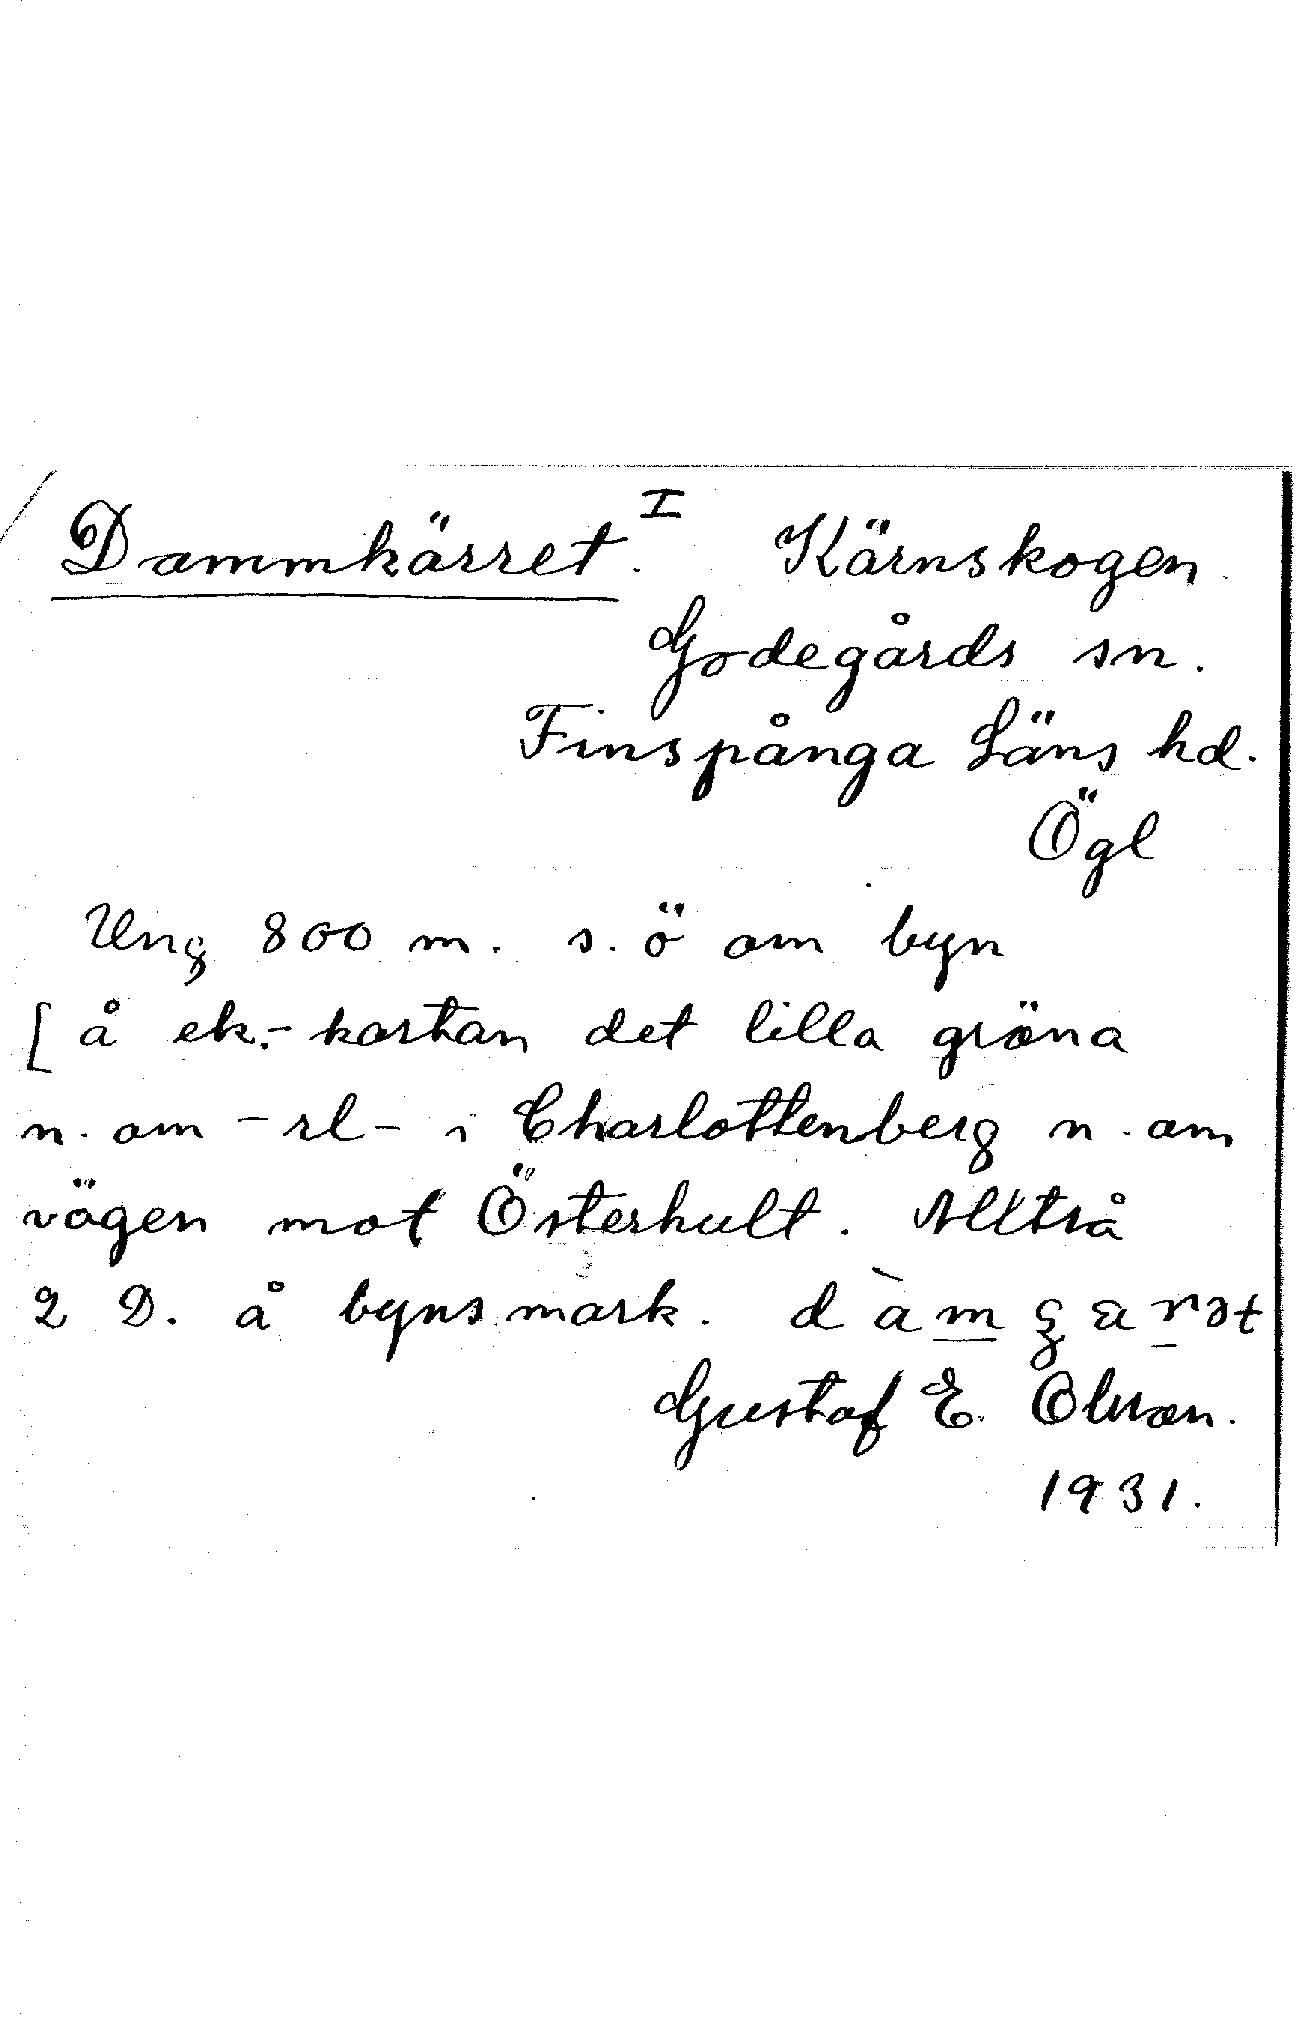 Dammkärret. I Kärnskogen.
Godegårds sn.
Finspånga Läns hd.
Ögl
Ung 800 m. s.ö om byn
[ å ek.-kartan det lilla gröna
n. om -rl- i Charlottenberg n. om
vägen mot Österhult. Alltså
2 D. å byns mark.
Gustaf E. Olsson.
1931.